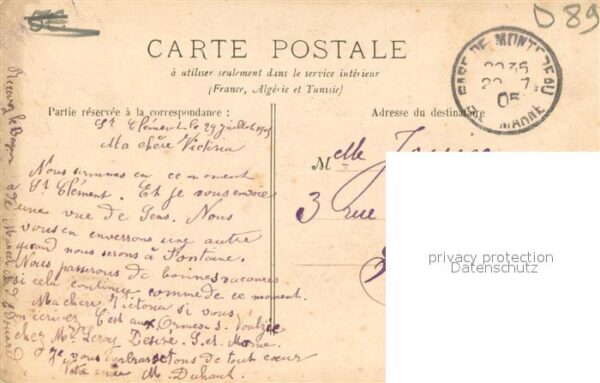 D 89
CARTE POSTALE
à utiliser seulement dans le service intérieur
(France, Algérie et Tunisie)
Partie réservée à la correspondance :
Adresse du destinataire
GARE DE MONTEREAU
22 7
05
MARNE
St Clément le 29 juillet 1905
Ma chère Victoria
Nous sommes en ce moment
St Clément. Et je vous envoie
une vue de Sens. Nous
vous en enverrons une autre
quand nous serons à Fontaine.
Nous passerons de bonnes vacances
si cela continue comme de ce moment.
Ma chère Victoria si vous
m'écrivez C'est aux Ormes s. Voulzie
chez Mr Leroy Désiré S. et Marne.
Je vous embrasse tous de tout cœur
Votre amie M. Duhaut.
Melle
3 rue
privacy protection
Datenschutz